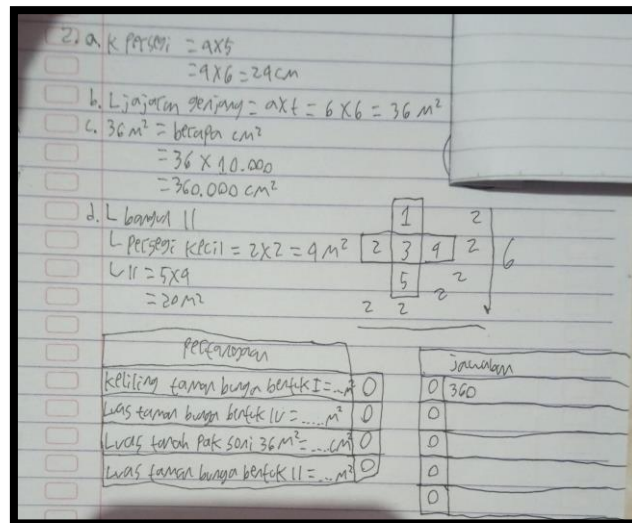 2. a. K persegi = 4x5
= 4x6 = 24 cm
b. L jajaran genjang = axt = 6 x 6 = 36 m²
c. 36 m² = berapa cm²
= 36 x 10.000
= 360.000 cm²
d. L bangun II
L persegi kecil = 2x2 = 4 m²
L II = 5x4
= 20 m²
1 2
2 3 4 2
6
5 2
2
2 2
Pertanyaan
keliling taman bunga bentuk I = ... m² O
Luas taman bunga bentuk IV = ..... m² O
Luas tanah Pak soni 36 m² = .... cm² O
Luas taman bunga bentuk II = ... m² O
Jawaban
O 360
O
O
O
O